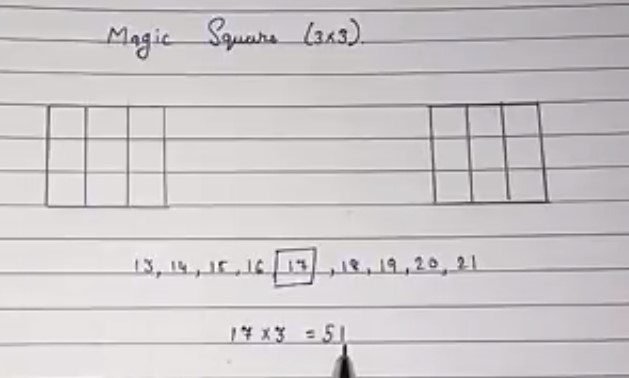 Magic Square (3x3).
13, 14, 15, 16, 17, 18, 19, 20, 21
17 x 3 = 51